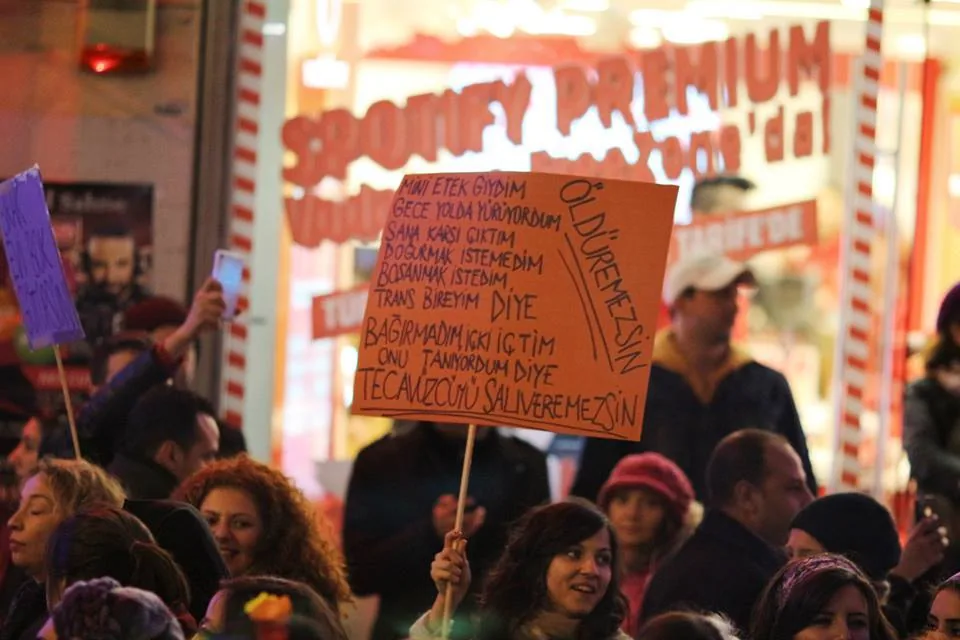 SPOTIFY PREMIUM
MİNİ ETEK GİYDİM
GECE YOLDA YÜRÜYORDUM
SANA KARŞI ÇIKTIM
DOĞURMAK İSTEMEDİM
BOŞANMAK İSTEDİM,
TRANS BİREYİM DİYE
ÖLDÜREMEZSİN
BAĞIRMADIM İÇKİ İÇTİM
ONU TANIYORDUM DİYE
TECAVÜZCÜYÜ SALIVEREMEZSİN
TARİFE'DE